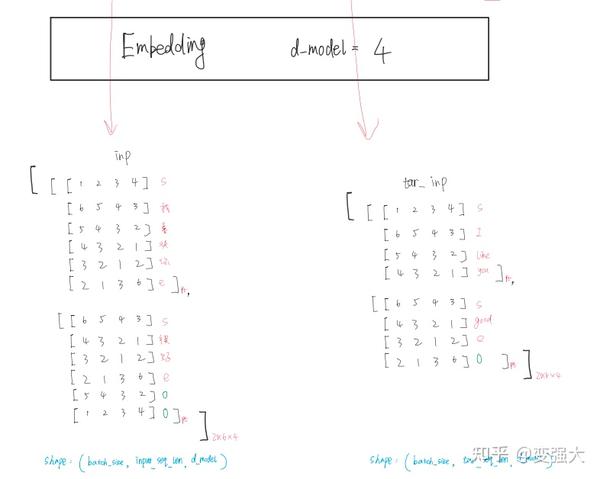 Embedding d_model = 4
inp
[ [ [ 1 2 3 4 ] S
[ 6 5 4 3 ] 我
[ 5 4 3 2 ] 喜
[ 4 3 2 1 ] 欢
[ 3 2 1 2 ] 你
[ 2 1 3 6 ] e ]
[ [ 6 5 4 3 ] S
[ 4 3 2 1 ] 很
[ 3 2 1 2 ] 好
[ 2 1 3 6 ] e
[ 5 4 3 2 ] 0
[ 1 2 3 4 ] 0 ]
] 2×6×4
shape: (batch_size, input_seq_len, d_model)
tar_inp
[ [ [ 1 2 3 4 ] S
[ 6 5 4 3 ] I
[ 5 4 3 2 ] like
[ 4 3 2 1 ] you ]
[ [ 6 5 4 3 ] S
[ 4 3 2 1 ] good
[ 3 2 1 2 ] e
[ 2 1 3 6 ] 0 ]
] 2×6×4
shape: (batch_size, tar_seq_len, d_model)
知乎 @变强大